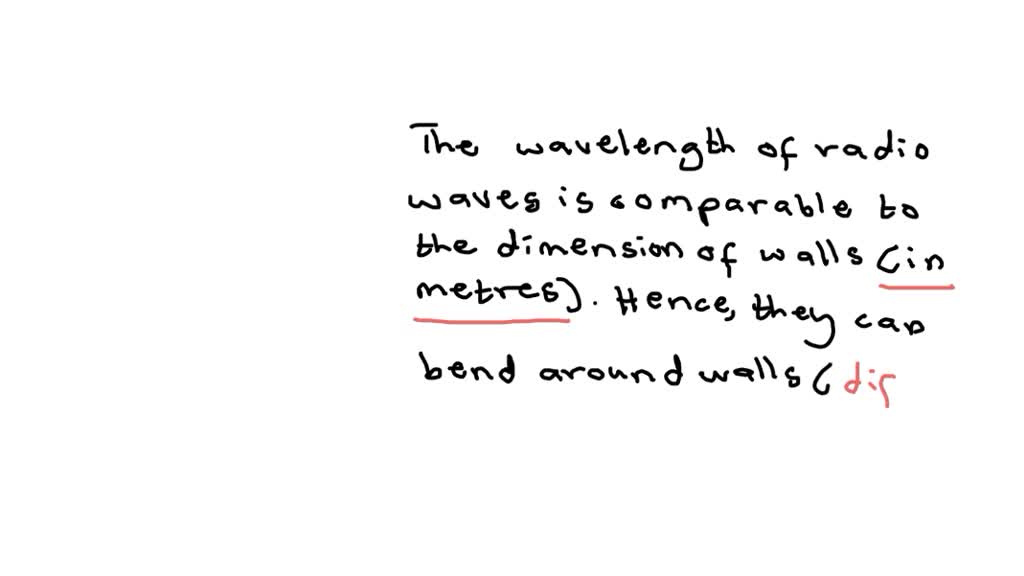 The wavelength of radio
waves is comparable to
the dimension of walls (in
metres). Hence, they can
bend around walls (dif